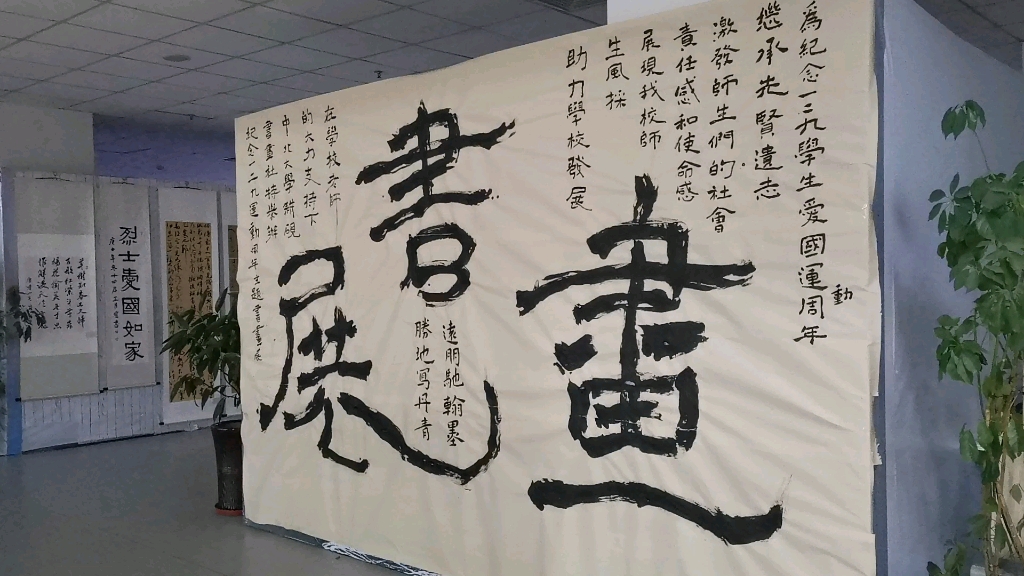 為紀念一二九學生愛國運周年
動
繼承先賢遺志
激發師生們的社會
責任感和使命感
展現我校師
生風採
助力學校發展
書畫展
遠朋馳翰墨
勝地写丹青
在學校老師
的大力支持下
中北大學新硯
書畫社特舉辦
紀念一二九運動周年主題書畫展
烈士愛國如家